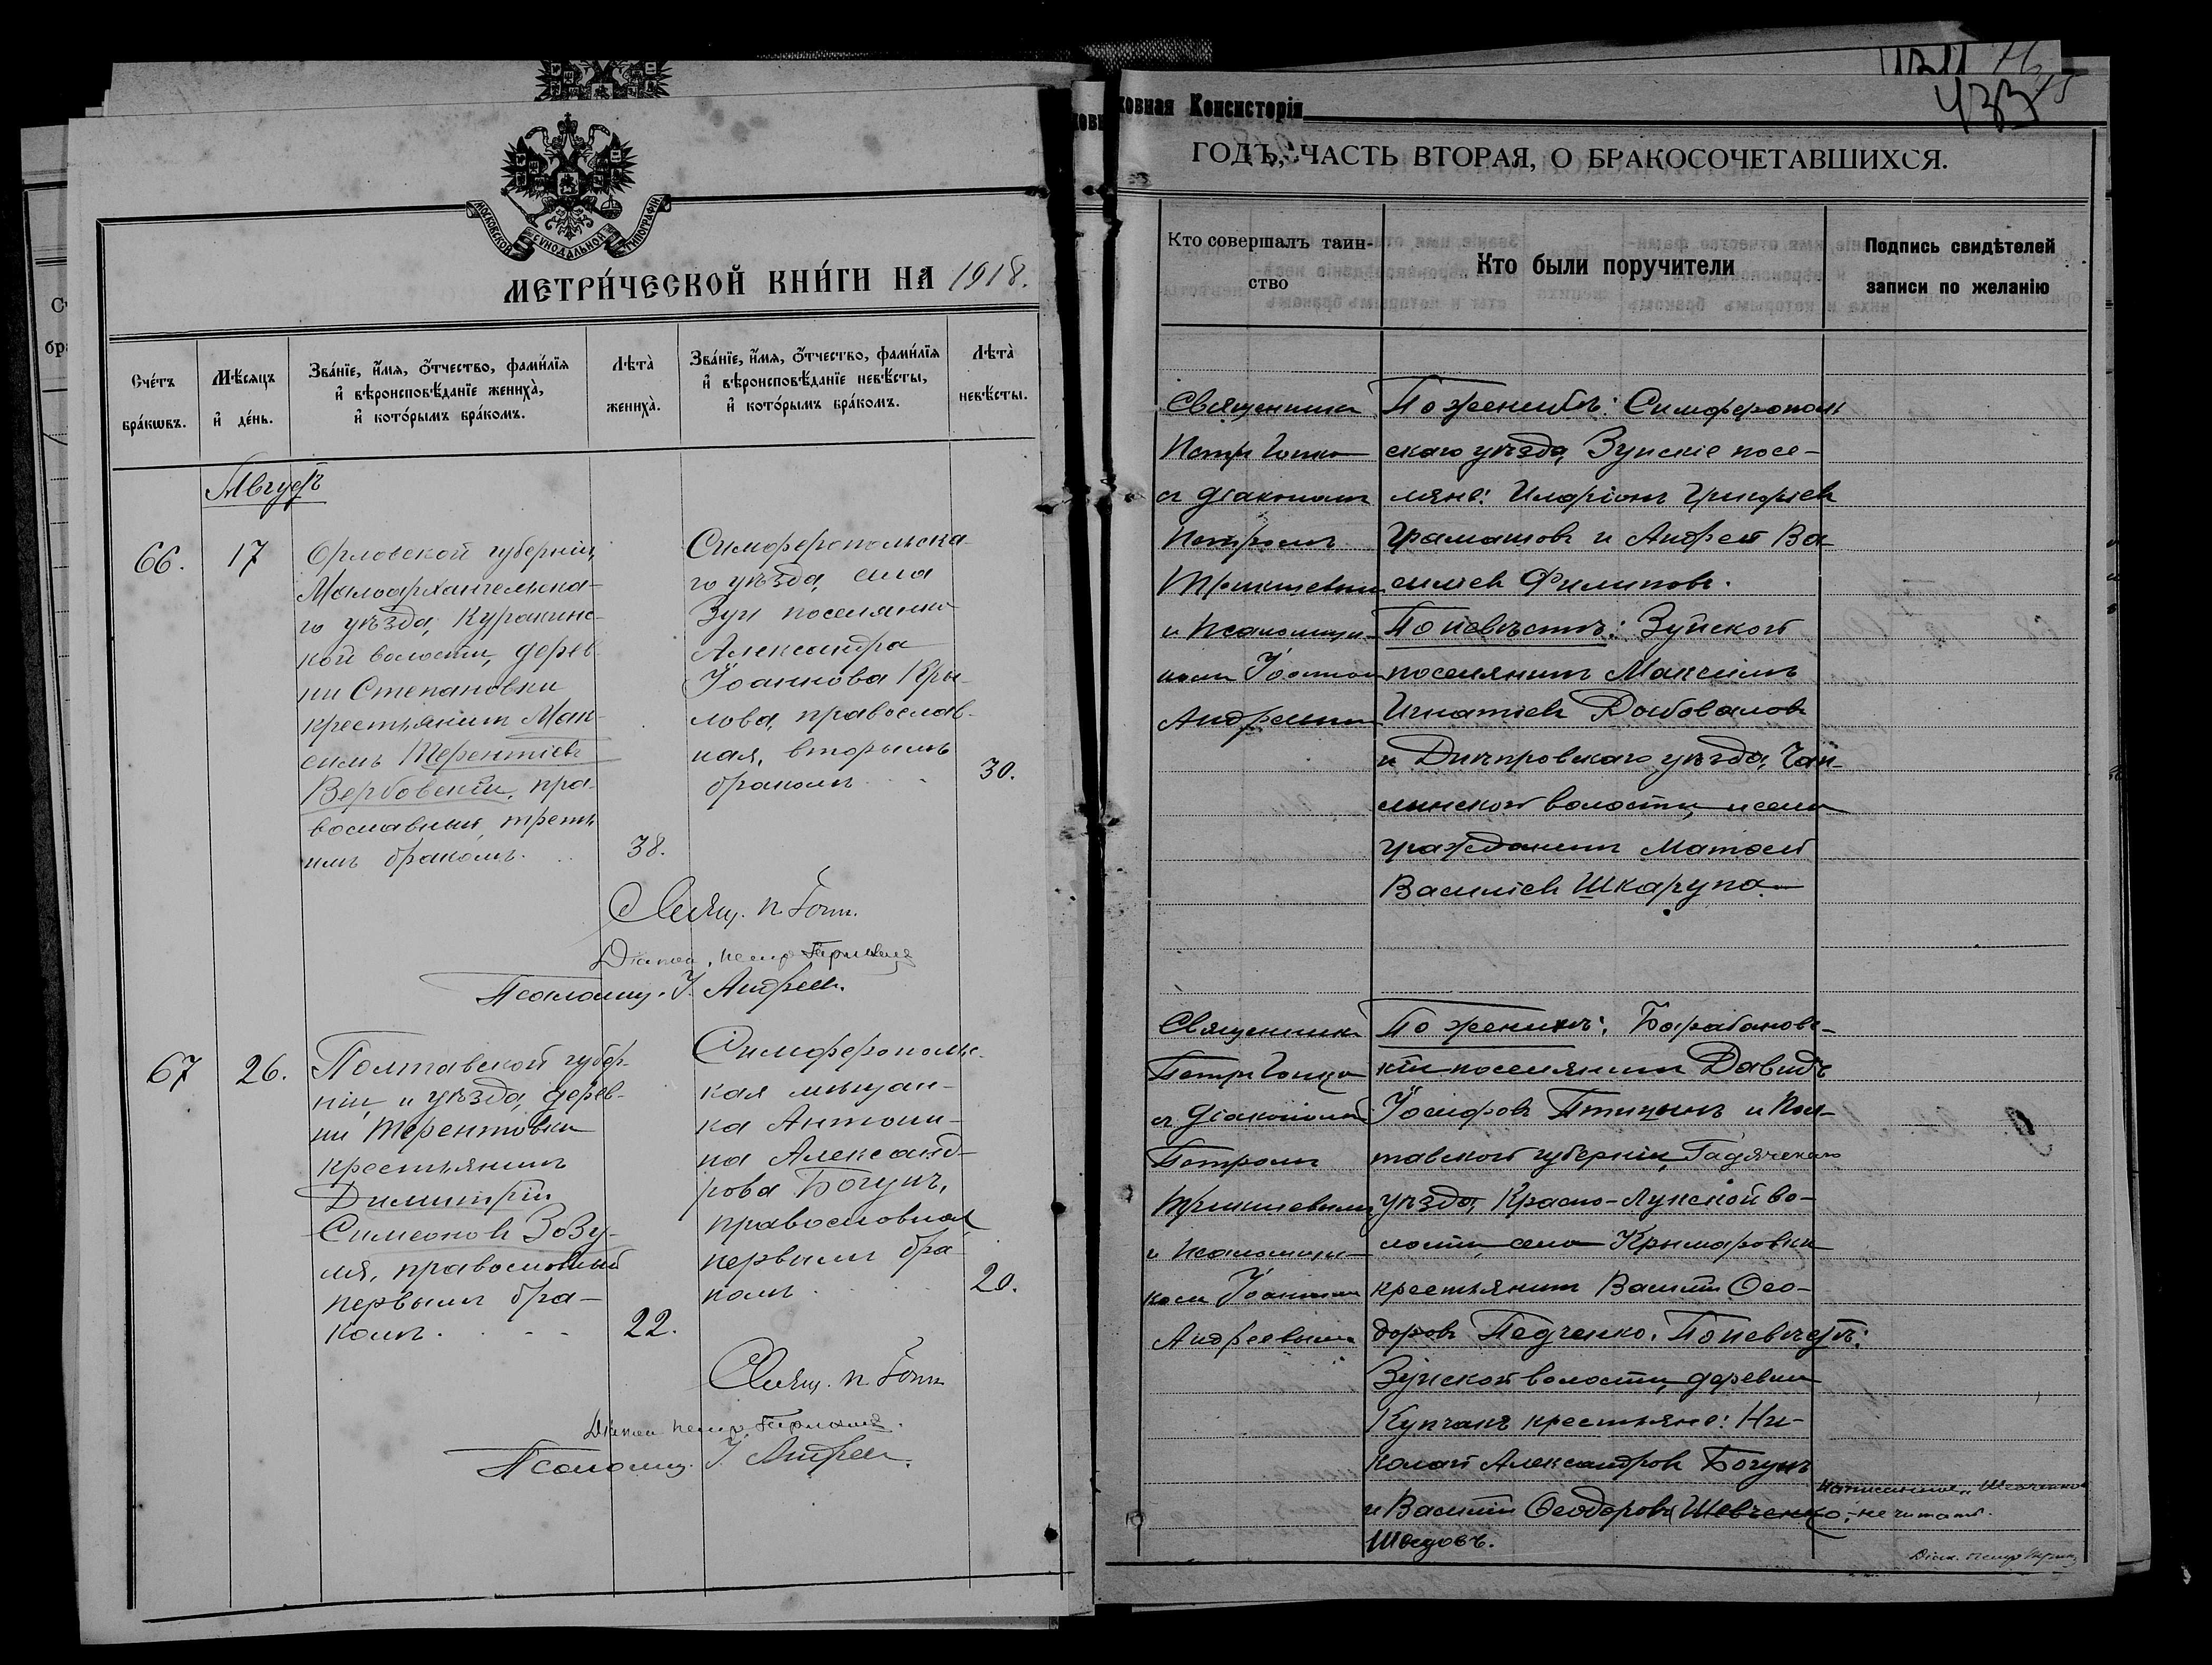 МОСКОВСКОЙ СѴНОДАЛЬНОЙ ТИПОГРАФІИ
МЕТРИ́ЧЕСКОЙ КНИ́ГИ НА 1918.
Сче́тъ бра́кѡвъ.
Мѣ́сяцъ и҆ де́нь.
Зва́нїе, и҆́мя, ѻ҆́тчество, фами́лїя и҆ вѣроисповѣ́данїе жениха̀, и҆ кото́рымъ бра́комъ.
Лѣта̀ жениха̀.
Зва́нїе, и҆́мя, ѻ҆́тчество, фами́лїя и҆ вѣроисповѣ́данїе невѣ́сты, и҆ кото́рымъ бра́комъ.
Лѣта̀ невѣ́сты.
Августъ
66.
17
Орловской губерніи,
Малоархангельска-
го уѣзда, Куракинс-
кой волости, дерев-
ни Степановки
крестьянинъ Мак-
симъ Терентіевъ
Вербовскій, пра-
вославный, треть
имъ бракомъ.
38.
Симферопольска-
го уѣзда, села
Зуи поселянка
Александра
Іоаннова Кры-
лова, православ-
ная, вторымъ
бракомъ
30.
Свящ. П.
Діакон. Петр
Псаломщ. І. Андреев.
67
26.
Полтавской губер-
ніи и уѣзда, дерев-
ни Терентовки
крестьянинъ
Димитрій
Симеонов Зозу-
ля, православный
первымъ бра-
комъ.
22.
Симферопольс-
кая мѣщан-
ка Антони-
на Александ-
рова Богунъ,
православная
первымъ бра-
комъ
20.
Свящ. П.
Діакон Петр
Псаломщ. І. Андреев.
433
ховная Консисторія
ГОДЪ, ЧАСТЬ ВТОРАЯ, О БРАКОСОЧЕТАВШИХСЯ.
Кто совершалъ таин-
ство
Кто были поручители
Подпись свидѣтелей
записи по желанію
Священникъ
Петръ
съ діакономъ
Петромъ
и псаломщи-
комъ Іоанном
Андреевым
По женихѣ: Симферополь
скаго уѣзда, Зуйскіе посе-
ляне: Иларіонъ Григоріев
Граматовъ и Андрей Ва-
силіев Филиповъ.
По невѣстѣ: Зуйской
поселянинъ Максимъ
Игнатіев
и Днѣпровскаго уѣзда, Чап-
линской волости и села
гражданинъ Матѳей
Василіев Шкарупа.
Священникъ
Петръ
съ діакономъ
Петромъ
и псаломщи-
комъ Іоанном
Андреевымъ
По женихѣ: Барабановс-
кій поселянинъ Давидъ
Іосифовъ Птицынъ и Пол-
тавской губерніи, Гадячскаго
уѣзда, Красно-Лукской во-
лости, села Крымаровки
крестьянинъ Василій Ѳео-
доровъ Педченко. По невѣстѣ:
Зуйской волости, деревни
Купчакъ крестьяне: Ни-
колай Александров Богунъ
и Василій Ѳеодоровъ Шевченко
Швецовъ.
Написанное „Шевченко
не читать.
Діак. Петр